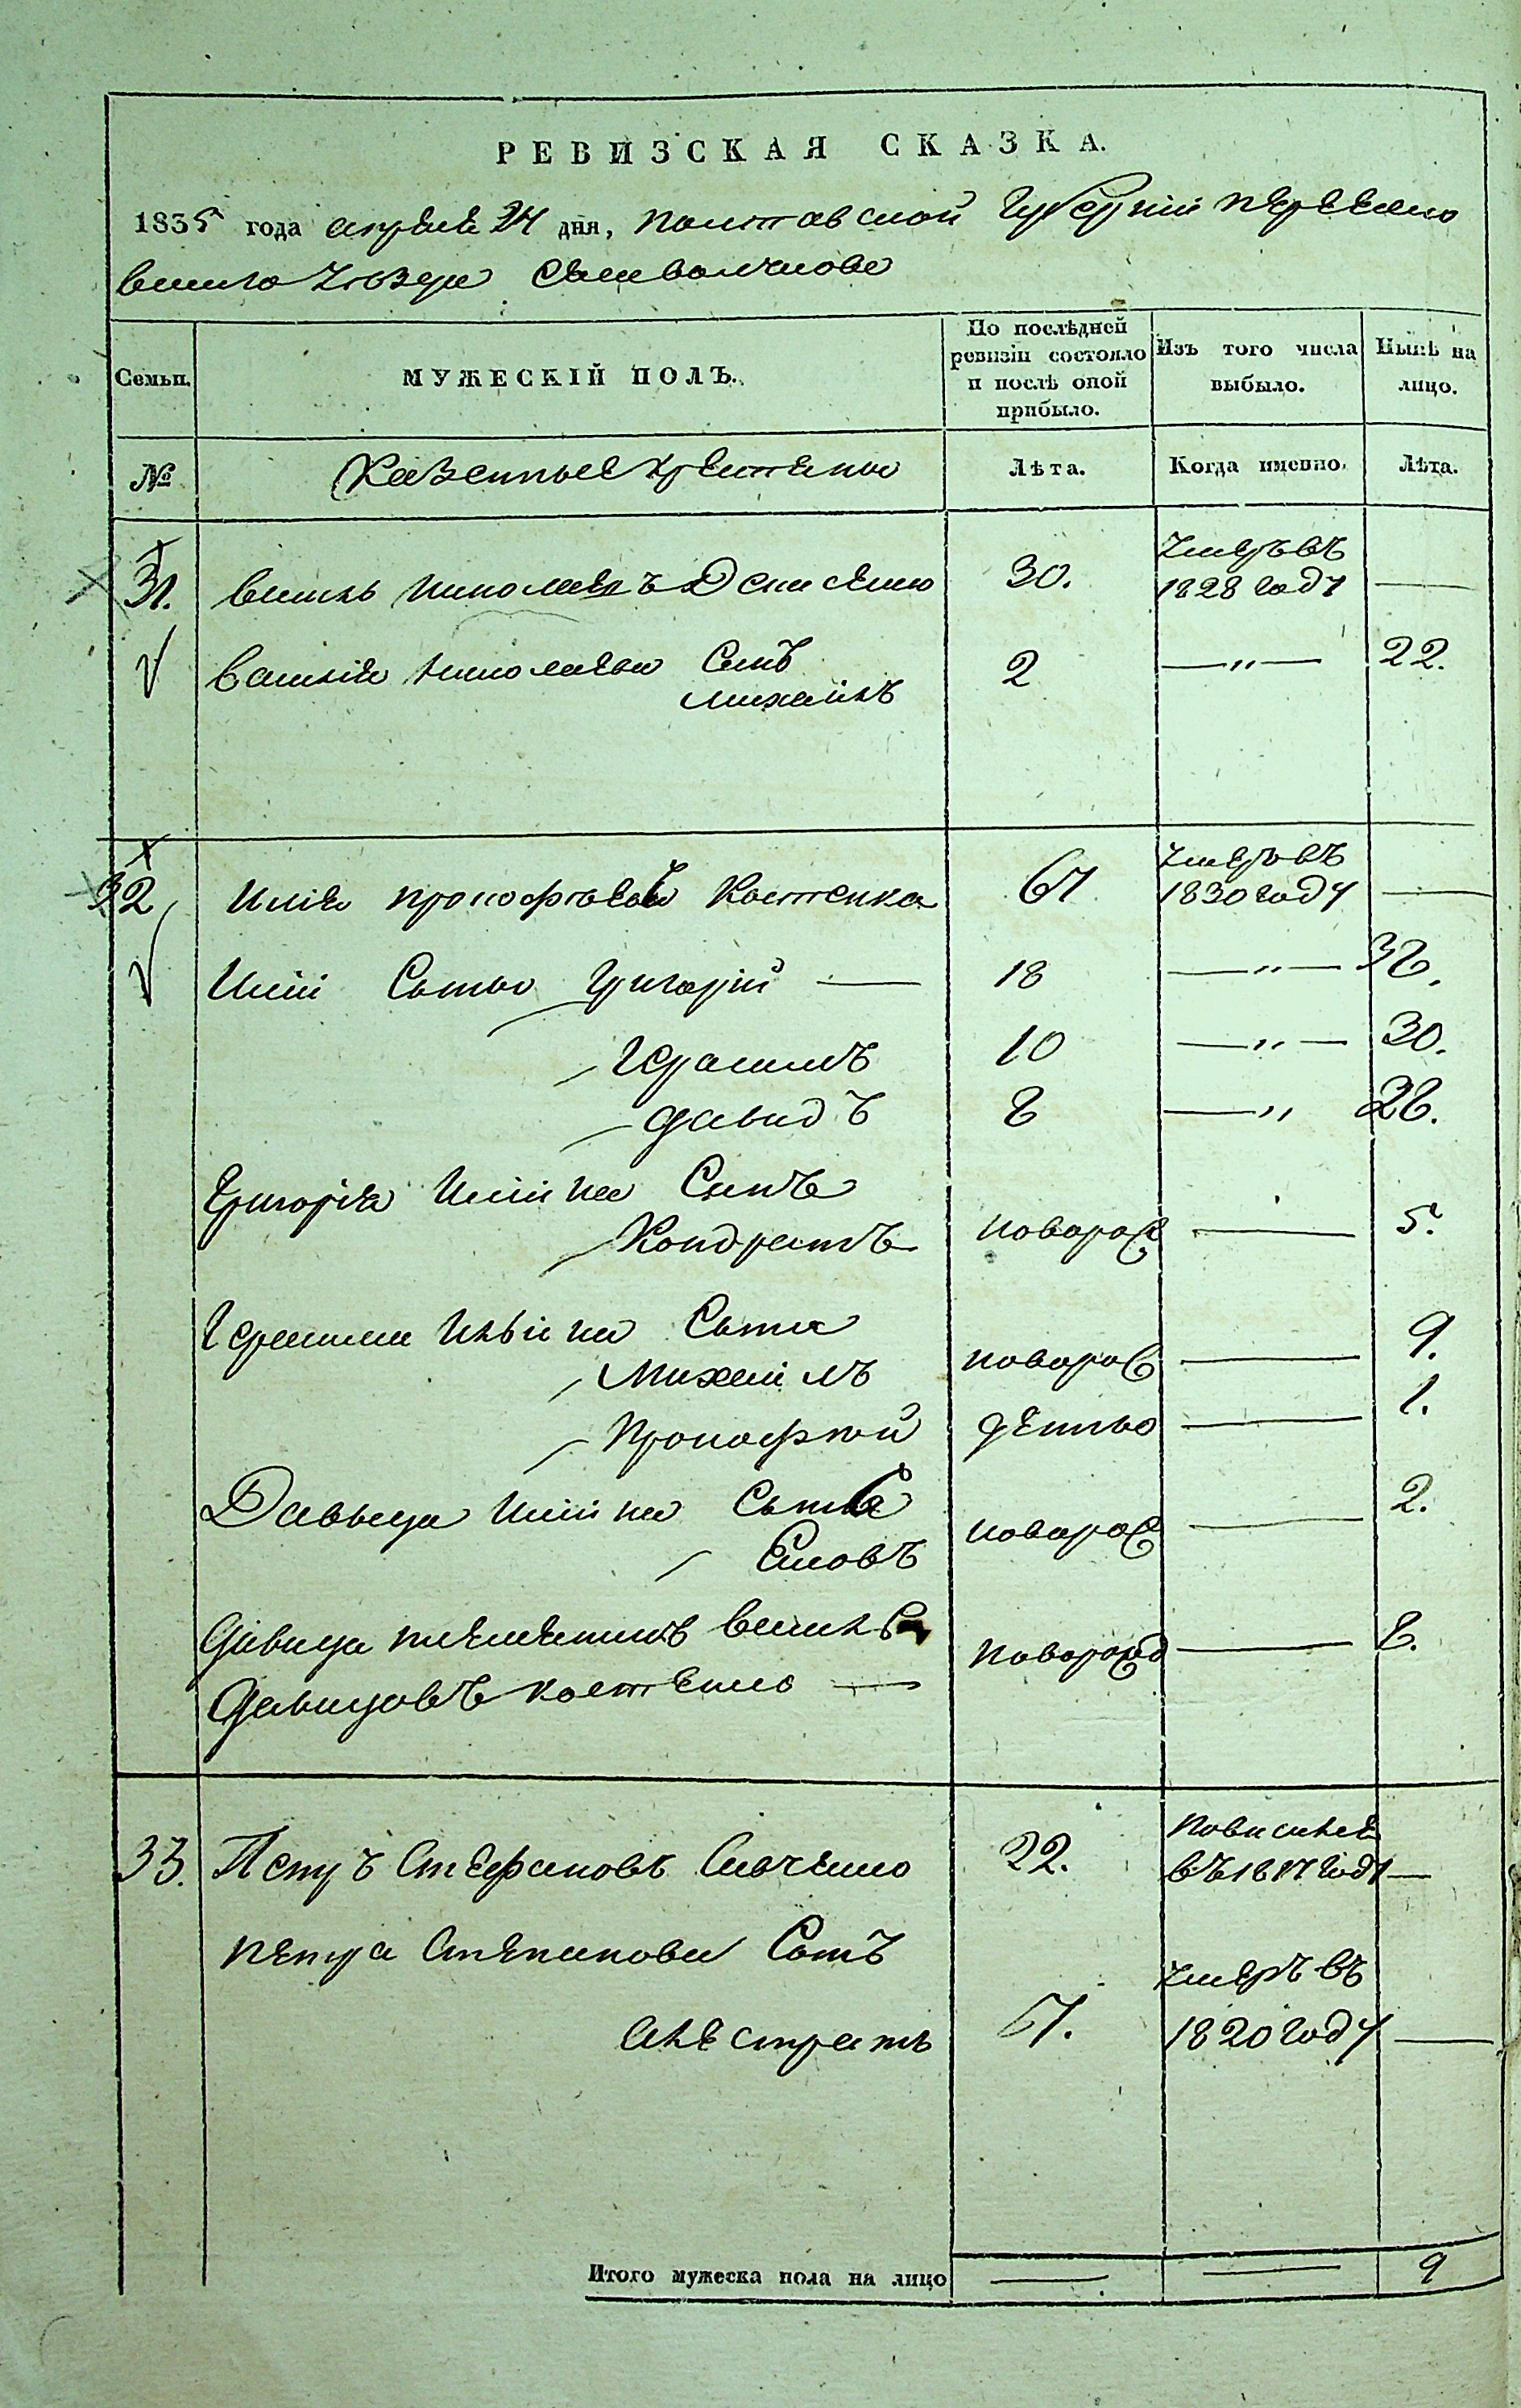 РЕВИЗСКАЯ СКАЗКА.
1835 года апреля 24 дня, Полтавской Губернии Переясла
вского уезда села Волчкова
Семьи. МУЖЕСКІЙ ПОЛЪ. По послѣдней ревизіи состояло и послѣ оной прибыло. Изъ того числа выбыло. Нынѣ на лицо.
№ Казенные крестяны Лѣта. Когда именно. Лѣта.
31. Василь Николаевъ Денисенко 30. умеръ въ 1828 году —
Василия Николаева Сынъ 2 —"— 22.
Михаилъ
32 Илія Прокофіевъ Костенко 67 умеръ въ 1830 году —
Иліи Сыны Григорій — 18 —"— 38.
Герасимъ 10 —"— 30.
Давидъ 8 —" 28.
Григорія Иліина Сынъ
Кондратъ новорож — 5.
Герасима Ильина Сына
Михаилъ новорож — 9.
Прокофтой детьо — 1.
Давыда Иліина Сына новорож — 2.
Еловъ
Давида племеникъ Василь новорожд — 8.
Давидовъ Костенко —
33. Петръ Стефановъ Савченко 22. въ 1817 году —
Петра Степанова Сынъ
Алестратъ 7. умеръ въ 1820 году —
Итого мужеска пола на лицо — — 9